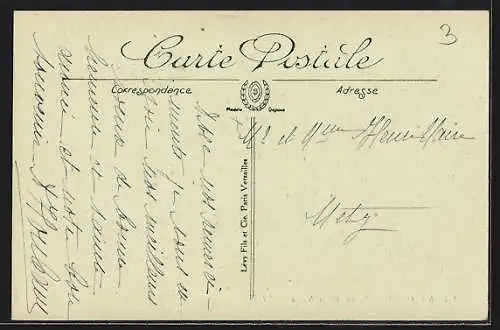 3
Carte Postale
Correspondance
Adresse
Marque Déposée
Lévy Fils et Cie, Paris Versailles
Mr et Mme Henri
Metz
Avec nos remerci-
ments je vous en
voie nos meilleurs
voeux de bonne
heureuse et sainte
année et notre bon
souvenir